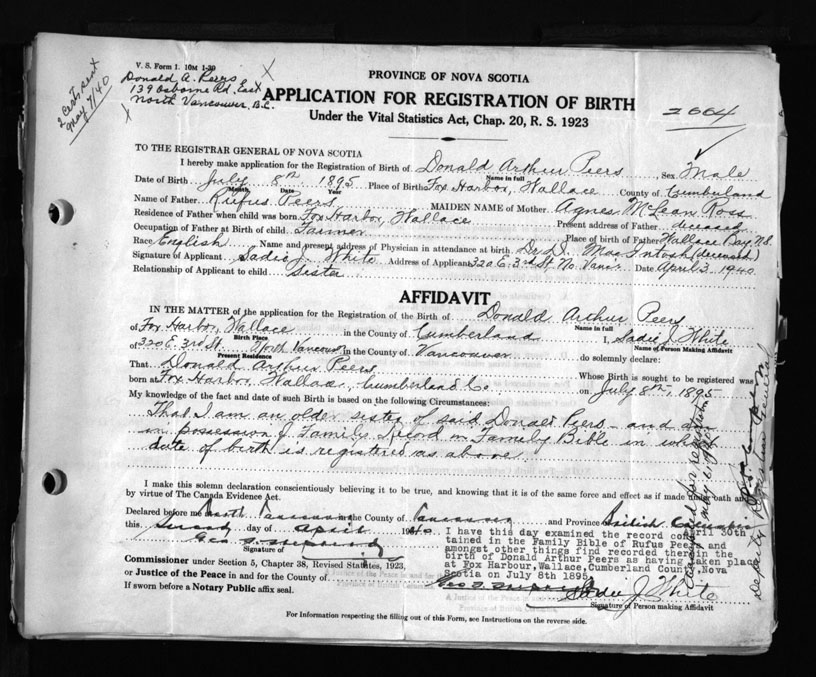 V. S. Form 1. 10M 1-39
2 certs sent
May 7/40
Donald A. Peers
139 Osborne Rd. East
North Vancouver, B.C.
PROVINCE OF NOVA SCOTIA
APPLICATION FOR REGISTRATION OF BIRTH
Under the Vital Statistics Act, Chap. 20, R. S. 1923
2664
TO THE REGISTRAR GENERAL OF NOVA SCOTIA
I hereby make application for the Registration of Birth of Donald Arthur Peers, Sex Male
Name in full
Date of Birth July 8th 1895 Place of Birth Fox Harbor, Wallace County of Cumberland
Month Date Year
Name of Father Rufus Peers MAIDEN NAME of Mother Agnes McLean Ross
Residence of Father when child was born Fox Harbor, Wallace Present address of Father deceased
Occupation of Father at Birth of child Farmer Place of birth of Father Wallace Bay N.S.
Race English Name and present address of Physician in attendance at birth Dr. D. MacIntosh (deceased)
Signature of Applicant Sadie J. White Address of Applicant 320 E. 3rd St. No. Vanir. Date April 3 1940
Relationship of Applicant to child Sister
AFFIDAVIT
IN THE MATTER of the application for the Registration of the Birth of Donald Arthur Peers
Name in full
of Fox Harbor, Wallace in the County of Cumberland I, Sadie J White
Birth Place Name of Person Making Affidavit
of 320 E. 3rd St. North Vancouver in the County of Vancouver do solemnly declare:
Present Residence
That Donald Arthur Peers Whose Birth is sought to be registered was
born at Fox Harbor Wallace, Cumberland Co. on July 8th, 1895
My knowledge of the fact and date of such Birth is based on the following Circumstances:
That I am an older sister of said Donald Peers and am
in possession of Family Record in Family Bible in which
date of birth is registered as above.
I make this solemn declaration conscientiously believing it to be true, and knowing that it is of the same force and effect as if made under oath and
by virtue of The Canada Evidence Act.
Declared before me North Vancouver in the County of Vancouver and Province British Columbia
this second day of April 1940
Signature of
April 30th
I have this day examined the record contained in the Family Bible of Rufus Peers and
amongst other things find recorded therein the
birth of Donald Arthur Peers as having taken place
at Fox Harbour, Wallace, Cumberland County, Nova
Scotia on July 8th 1895.
Commissioner under Section 5, Chapter 38, Revised Statutes, 1923,
or Justice of the Peace in and for the County of
If sworn before a Notary Public affix seal.
Sadie J. White
Signature of Person making Affidavit
For Information respecting the filling out of this Form, see Instructions on the reverse side.
Accepted for registration
May 6, 1940
Deputy Registrar General